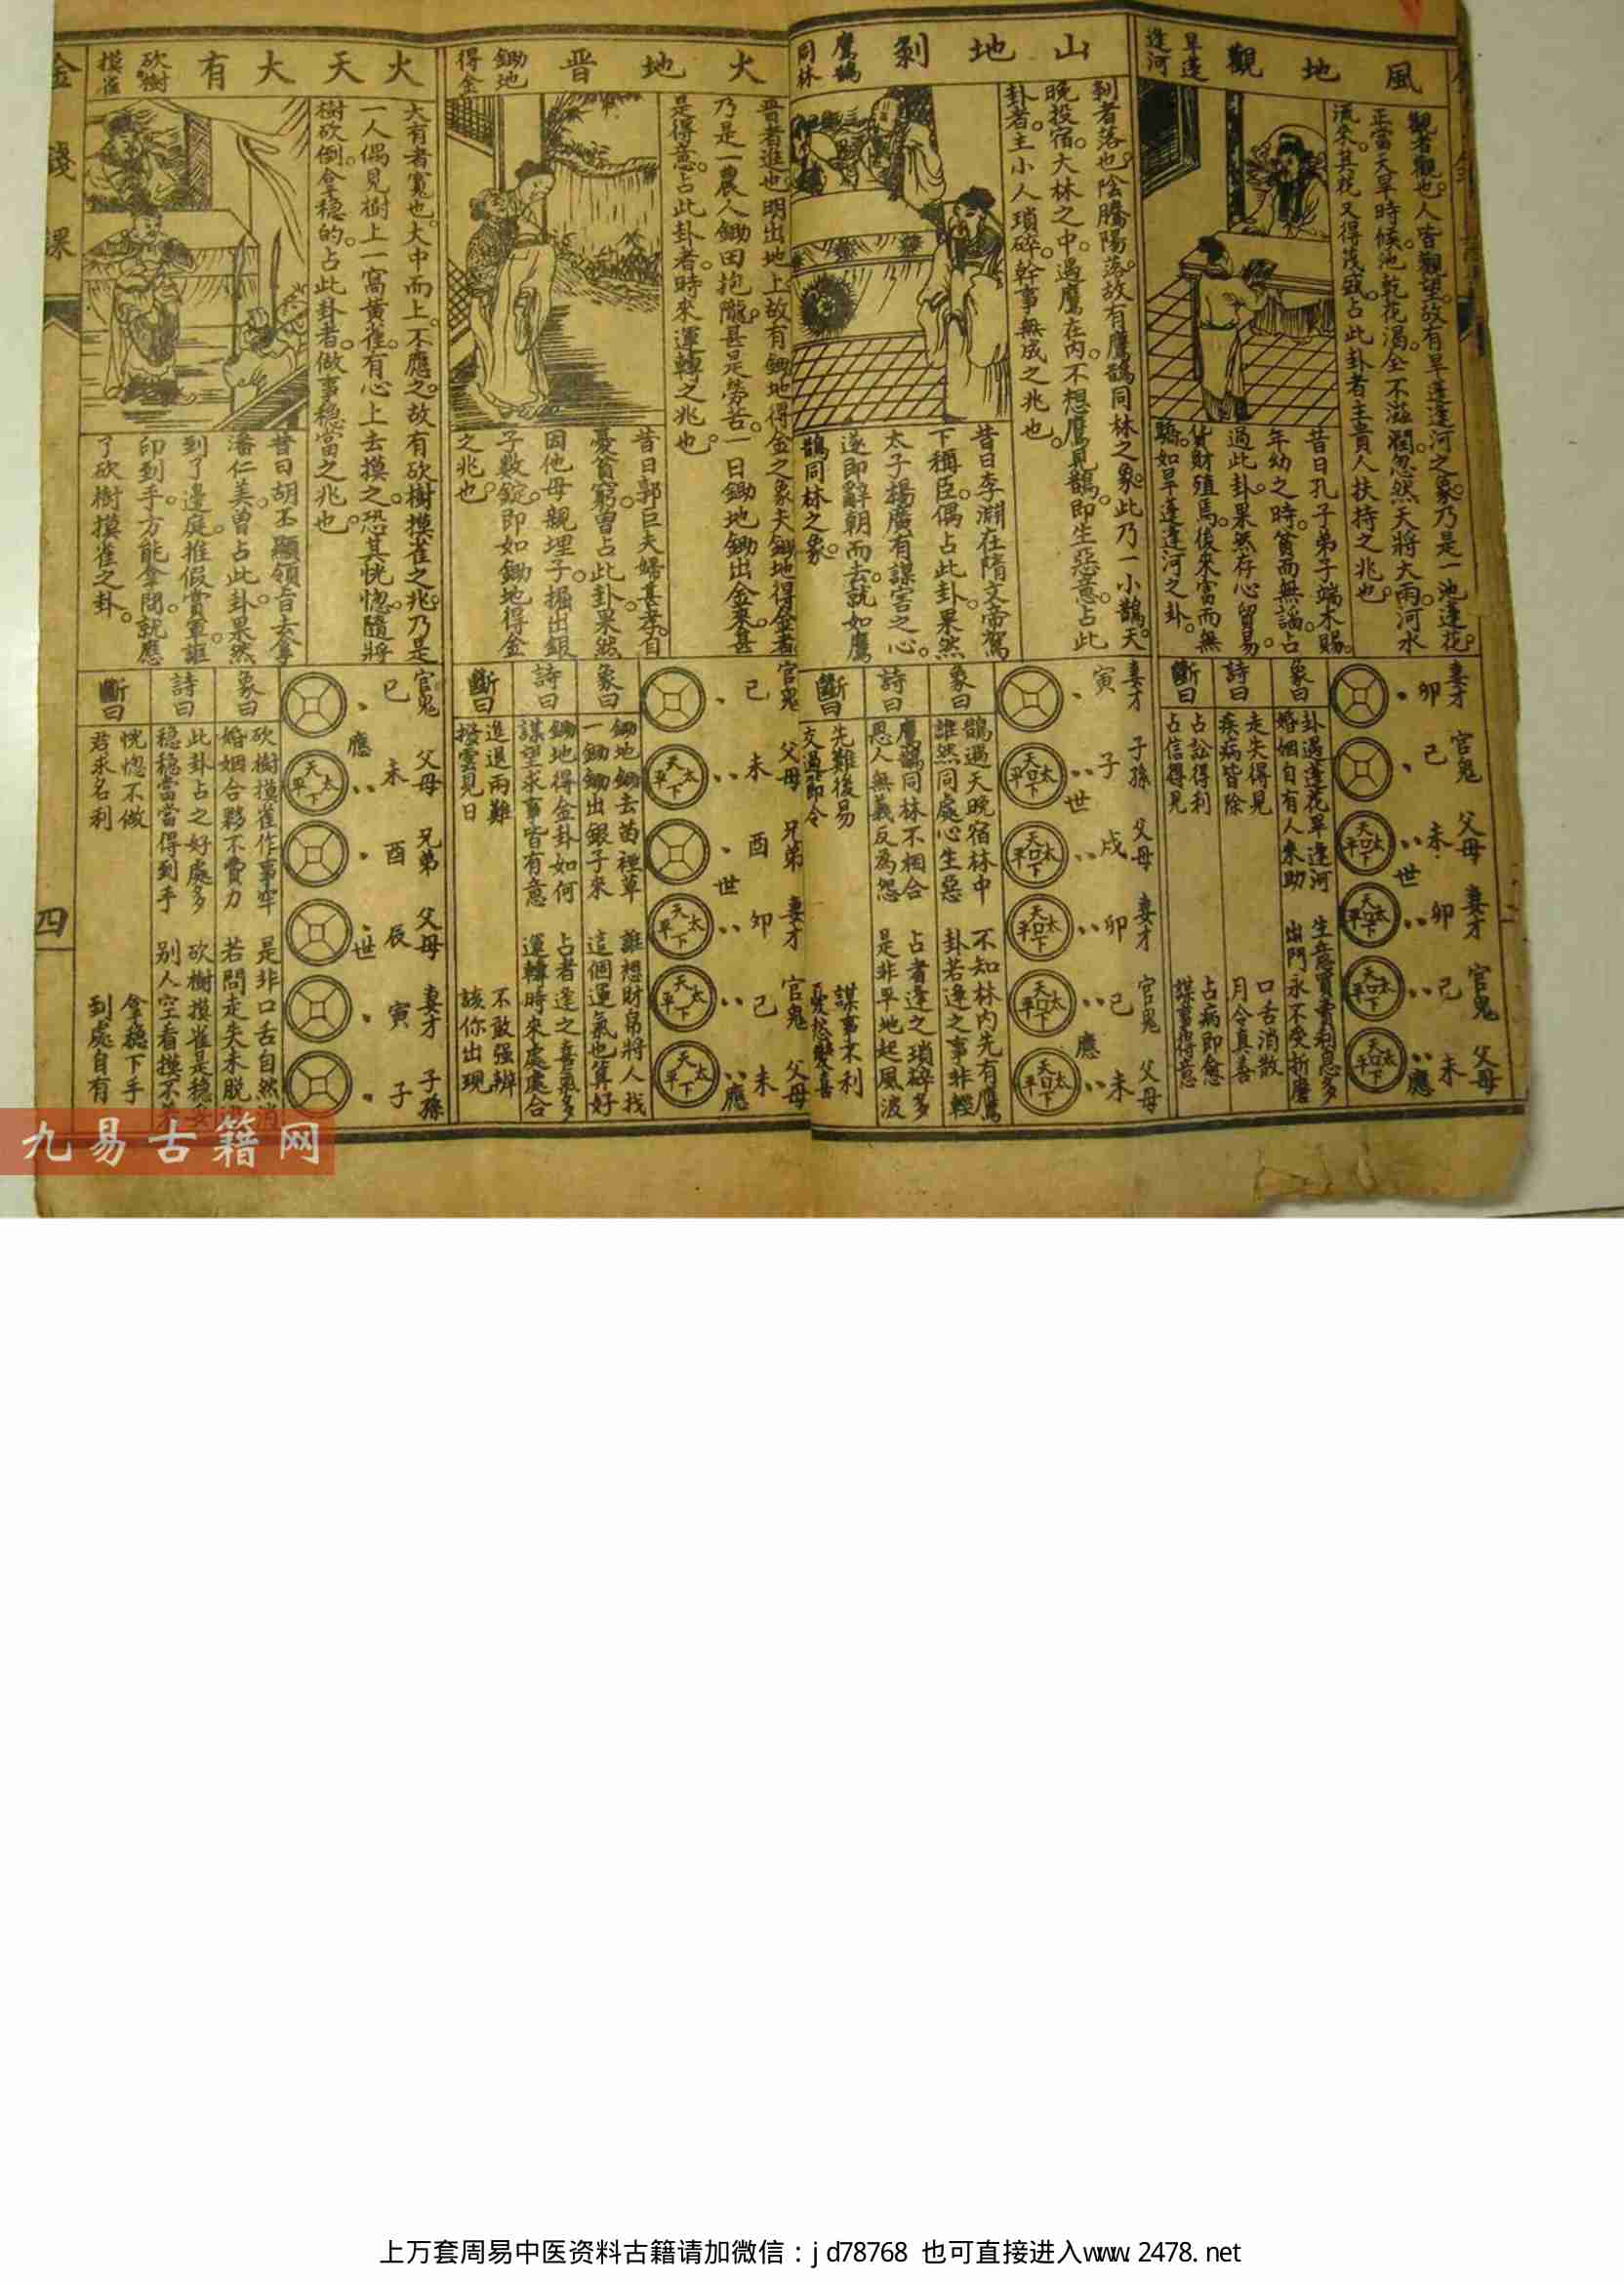 風地觀
旱蓮逢河
觀者觀也。人皆觀望。故有旱蓮逢河之象。乃是一池蓮花。
正當天旱時候。池乾花渴。全不滋潤。忽然天將大雨。河水
流來。其花又得茂盛。占此卦者。主貴人扶持之兆也。
昔日孔子弟子端木賜。
年幼之時。貧而無謟。占
過此卦。果然存心貿易。
貨財殖焉。後來富而無
驕。如旱蓮逢河之卦。
妻才 卯
官鬼 巳
父母 未 世
妻才 卯
官鬼 巳
父母 未 應
象曰
卦遇蓮花旱逢河 生意買賣利息多
婚姻自有人來助 出門永不受折磨
詩曰
走失得見 口舌消散
疾病皆除 月令真善
斷曰
占訟得利 占病即愈
占信得見 謀事得意
山地剝
鷹鵲同林
剝者落也。陰騰陽落。故有鷹鵲同林之象。此乃一小鵲。天
晚投宿。大林之中。遇鷹在內。不想鷹見鵲。即生惡意。占此
卦者。主小人瑣碎。幹事無成之兆也。
昔日李淵在隋文帝駕
下稱臣。偶占此卦。果然
太子楊廣有謀害之心。
遂即辭朝而去。就如鷹
鵲同林之象。
妻才 寅
子孫 子 世
父母 戌
妻才 卯
官鬼 巳 應
父母 未
象曰
鵲遇天晚宿林中 不知林內先有鷹
誰然同處心生惡 卦若逢之事非輕
詩曰
鷹鵲同林不相合 占者逢之瑣碎多
恩人無義反為怨 是非平地起風波
斷曰
先難後易 謀事不利
交過節令 憂愁變喜
火地晋
鋤地得金
晋者進也。明出地上。故有鋤地得金之象。夫鋤地得金者
乃是一農人鋤田抱隴。甚是勞苦。一日鋤地鋤出金來。甚
是得意。占此卦者。時來運轉之兆也。
昔日郭巨夫婦甚孝。自
憂貧窮。曾占此卦。果然
因他母親埋子。掘出銀
子數錠。即如鋤地得金
之兆也。
官鬼 巳
父母 未
兄弟 酉 世
妻才 卯
官鬼 巳
父母 未 應
象曰
鋤地鋤去苗裡草 誰想財帛將人找
一鋤鋤出銀子來 這個運氣也算好
詩曰
鋤地得金卦如何 占者逢之喜氣多
謀望求事皆有意 運轉時來處處合
斷曰
進退兩難 不敢强辦
撥雲見日 該你出現
火天大有
砍樹摸雀
大有者寬也。大中而上。不應之。故有砍樹摸雀之兆。乃是
一人偶見樹上一窩黄雀。有心上去摸之。恐其恍惚。隨將
樹砍倒。拿穩的。占此卦者。做事穩當之兆也。
昔日胡丕顯領旨去拿
潘仁美。曾占此卦。果然
到了邊庭。推假賞軍。誆
印到手。方能拿問。就應
了砍樹摸雀之卦。
官鬼 巳 應
父母 未
兄弟 酉
父母 辰 世
妻才 寅
子孫 子
象曰
砍樹摸雀作事牢 是非口舌自然消
婚姻合夥不費力 若問走失未脱
詩曰
此卦占之好處多 砍樹摸雀是穩妥
穩穩當當得到手 别人空看摸不着
斷曰
恍惚不做 拿穩下手
君求名利 到處自有
金錢課
四
太
天下
太
平
九易古籍网
上万套周易中医资料古籍请加微信：jd78768 也可直接进入www.2478.net